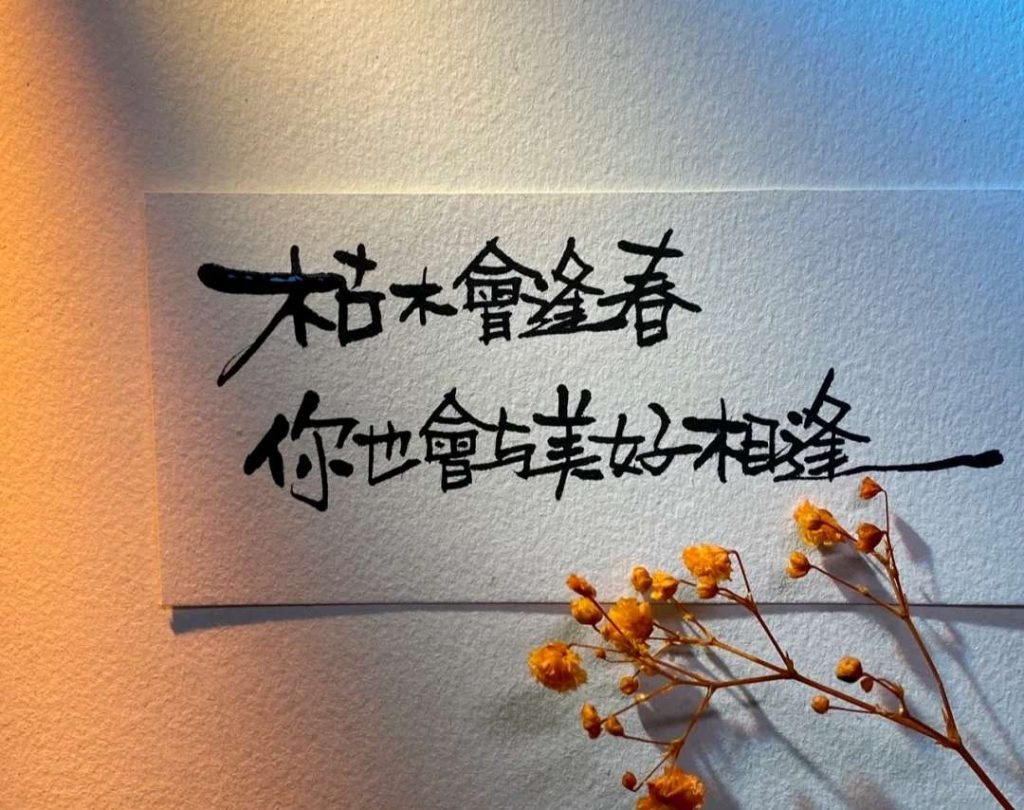 枯木會逢春
你也會与美好相逢